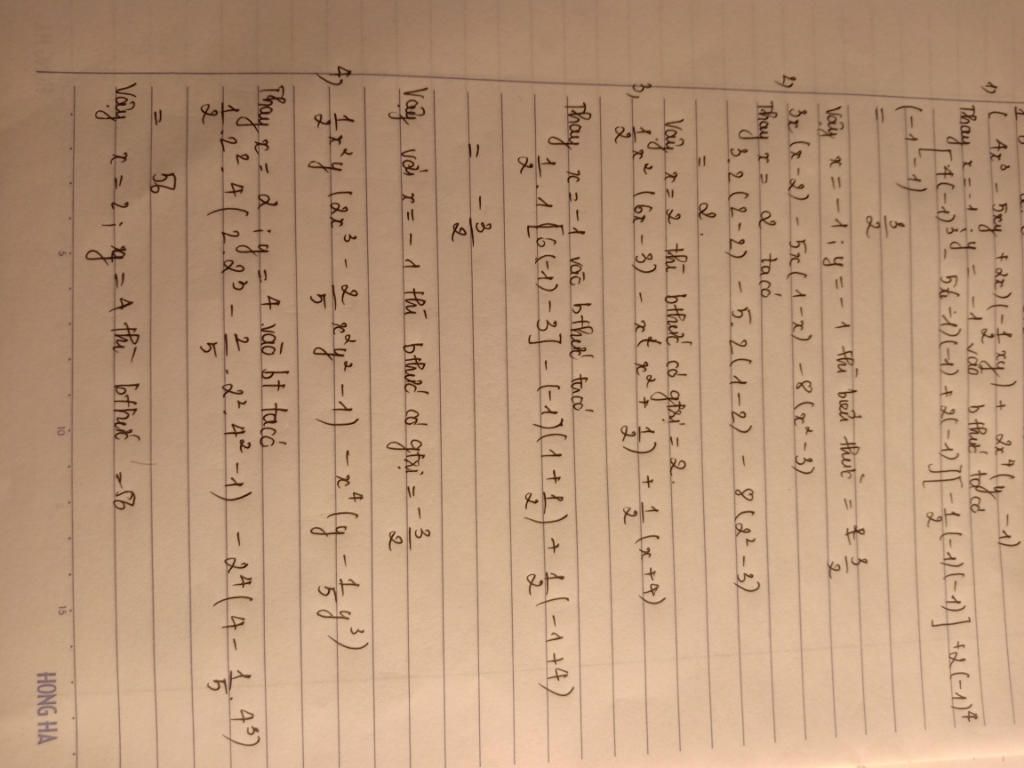 1) (4x³ - 5xy + 2x)(-1/2 xy) + 2x⁴(y - 1)
Thay x = -1; y = -1 vào bthức ta có
[4(-1)³ - 5(-1)(-1) + 2(-1)][-1/2(-1)(-1)] + 2(-1)⁴
(-1 - 1)
= 3/2
Vậy x = -1; y = -1 thì biểu thức = 3/2
2) 3x(x - 2) - 5x(1 - x) - 8(x² - 3)
Thay x = 2 ta có
3.2(2 - 2) - 5.2(1 - 2) - 8(2² - 3)
= 2.
Vậy x = 2 thì bthức có gtrị = 2.
3, 1/2 x²(6x - 3) - x(x² + 1/2) + 1/2(x + 4)
Thay x = -1 vào bthức ta có
1/2 . 1 [6(-1) - 3] - (-1)(1 + 1/2) + 1/2(-1 + 4)
= -3/2
Vậy với x = -1 thì bthức có gtrị = -3/2
4) 1/2 x²y (2x³ - 2/5 x²y² - 1) - x⁴(y - 1/5 y³)
Thay x = 2; y = 4 vào bt ta có
1/2 . 2² . 4 (2.2³ - 2/5 . 2² . 4² - 1) - 2⁴(4 - 1/5 . 4³)
= 56
Vậy x = 2; y = 4 thì bthức = 56
5 10 15
HONG HA